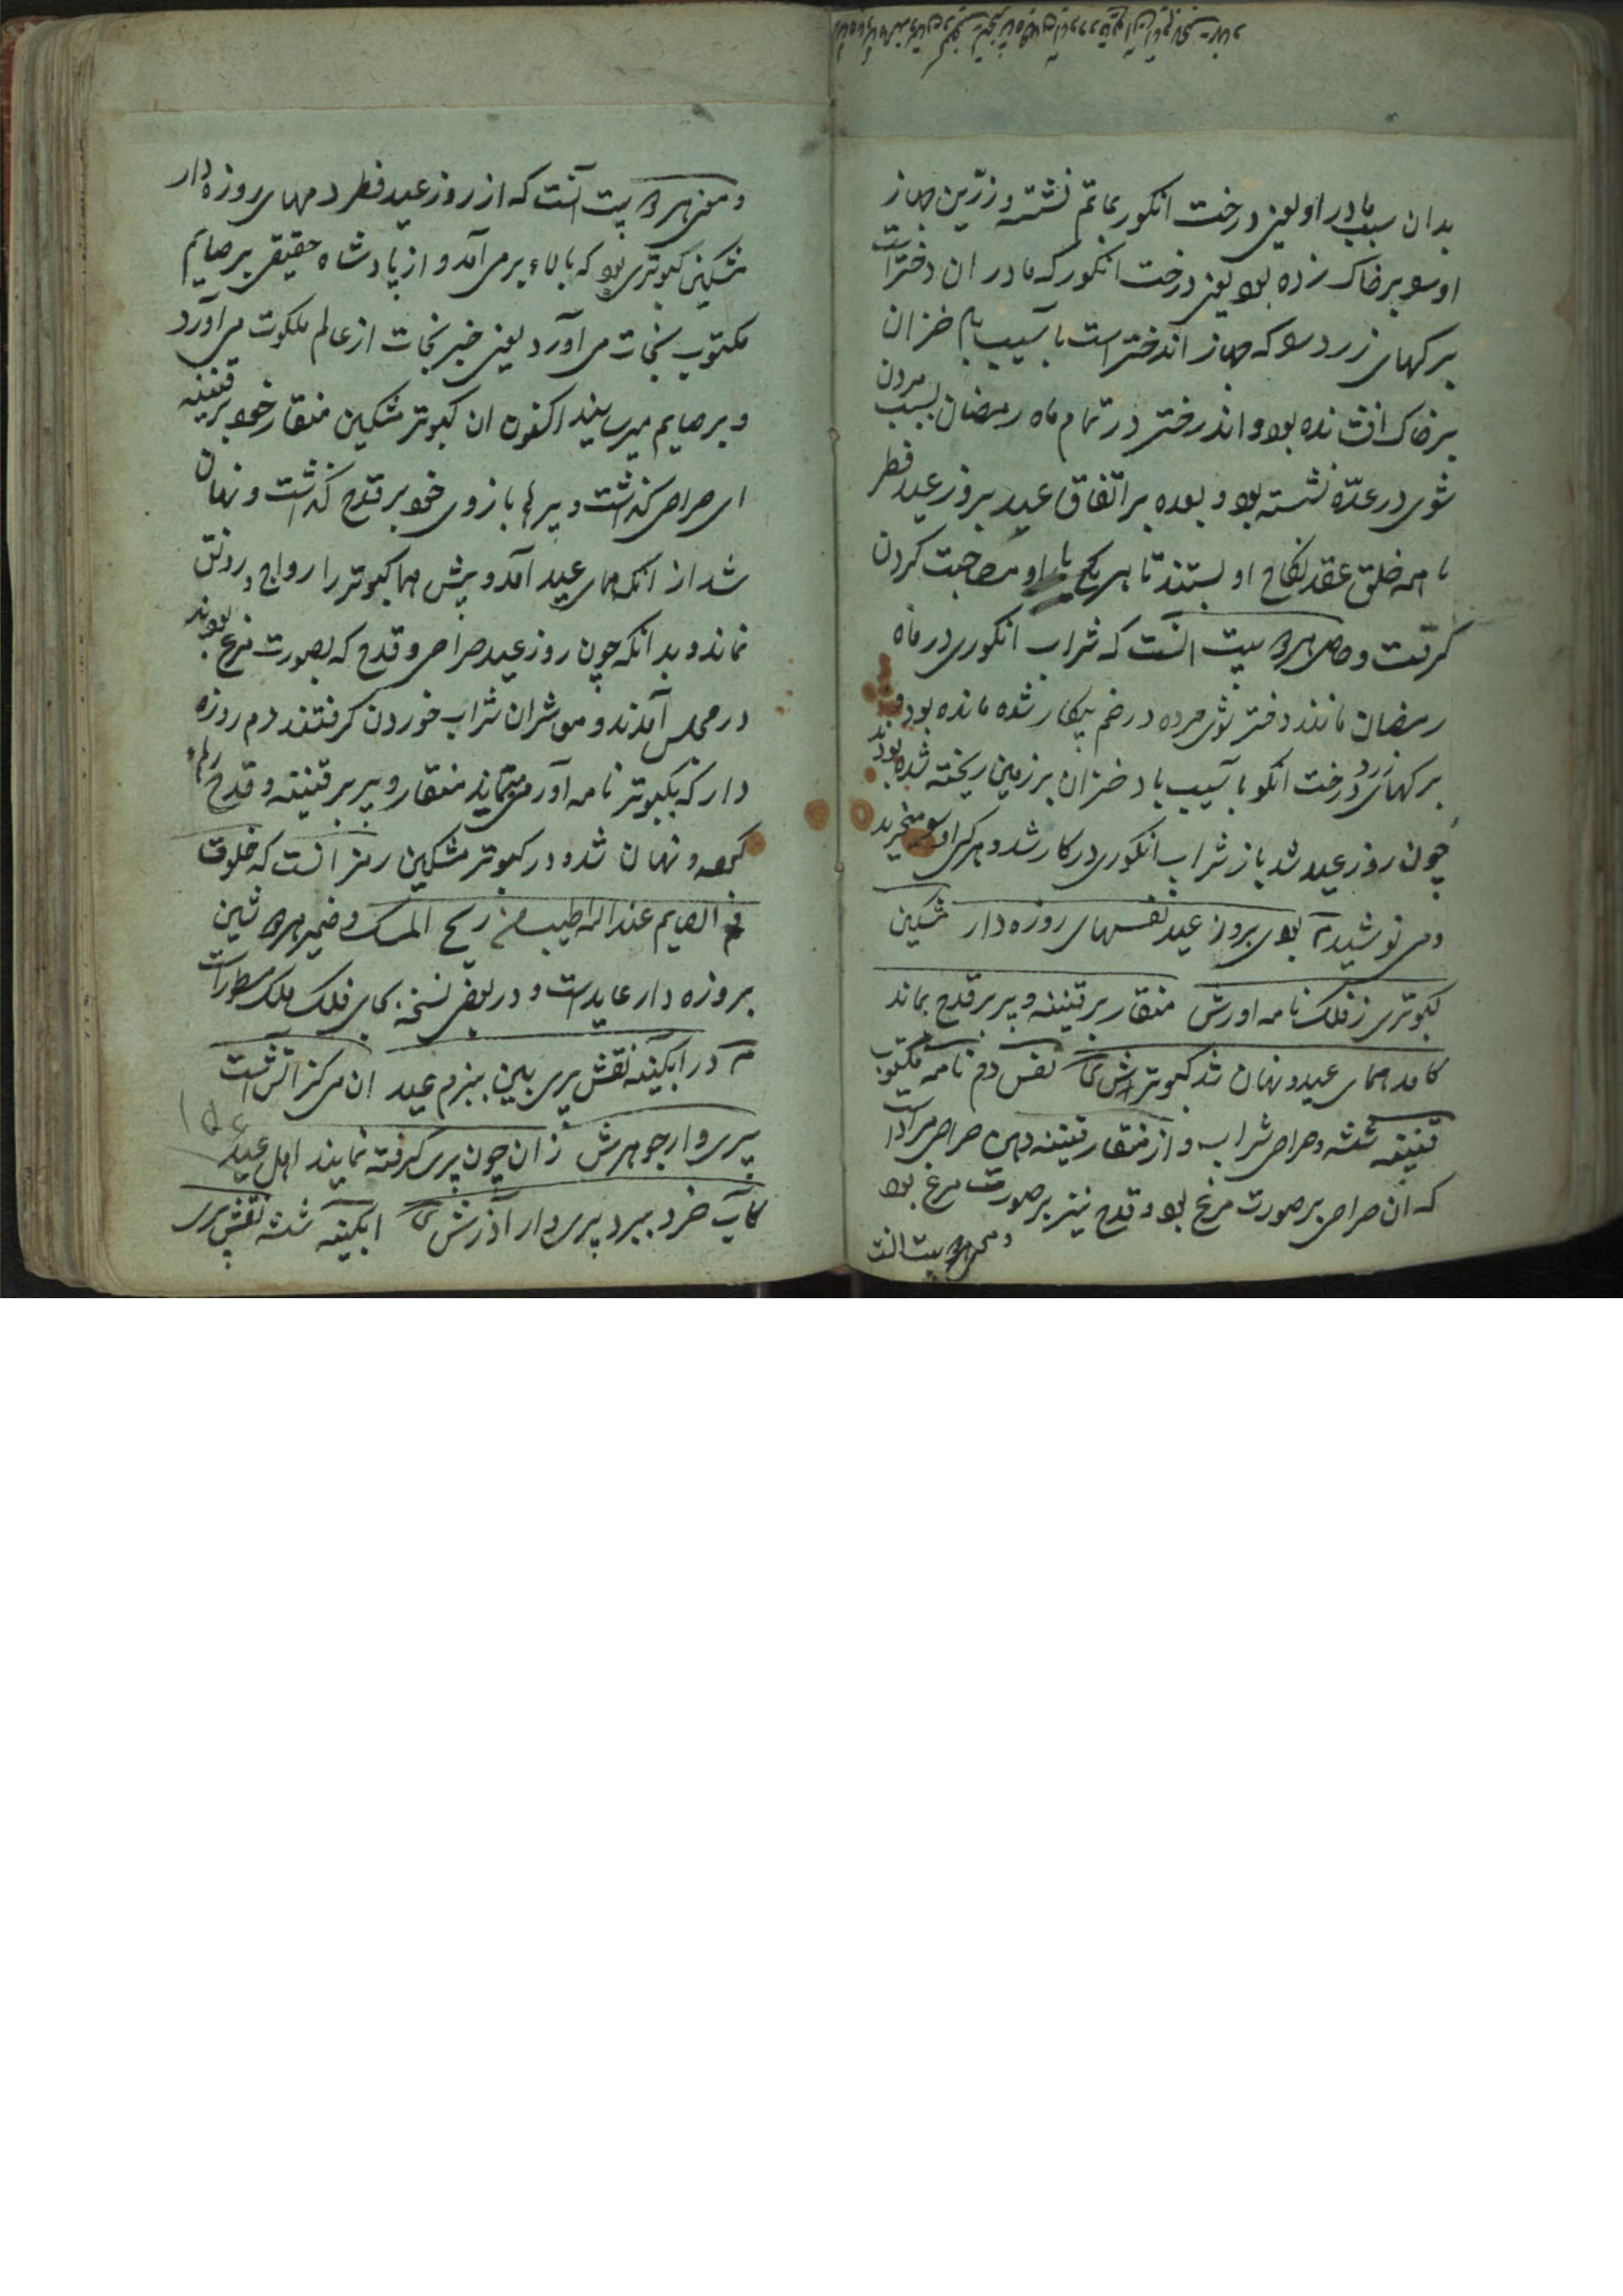 بدان سبب مادر او یعنی درخت انکور بماتم نشسته و زرین جهاز
او سو بر خاک زده بود یعنی درخت انکور که مادر ان دختر است
برکهای زرد سو که جهاز اندختر است باسیب باد خزان
بر خاک افشانده بود و اندختر در تمام ماه رمضان بسبب مردن
شوی در عده نشسته بود و بعده بر اتفاق عید بروز عید فطر
با همه خلق عقد نکاح او بستند تا هر یکی با او مصاحبت کردن
کرفت و حاصل هر دو بیت انست که شراب انکوری در ماه
رمضان مانند دختر شوی مرده در خم بیکار شده مانده بود و
برکهای زرد درخت انکور باسیب باد خزان بر زمین ریخته شده بودند
چون روز عید شد باز شراب انکوری در کار شد و هر کس او سو میخرید
و می نوشید بوی بروز عید نفسهای روزه دار مشکین
کبوتری ز فلک نامه اورش منقار بر قنینه و پر بر قدح بماند
کامد همای عید و نهان شد کبوترش نفس دم نامه مکتوب
قنینه شیشه و صراحی شراب و از منقار قنینه دهن صراحی مراد است
که ان صراحی بر صورت مرغ بود و قدح نیز بر صورت مرغ بود
و معنی هر دو بیت انست
و معنی هر دو بیت آنست که از روز عید فطر دمهای روزه دار
مشکین کبوتری بود که بالا بر می آمد و از پادشاه حقیقی بر صایم
مکتوب نجات می آورد یعنی خبر نجات از عالم ملکوت می آورد
و بر صایم میرسانید اکنون ان کبوتر مشکین منقار خود بر قنینه
ای صراحی کذاشت و پرها بازوی خود بر قدح کذاشت و نهان
شد از انکه همای عید آمد و پیش هما کبوتر را رواج و رونق
نماند و بدانکه چون روز عید صراحی و قدح که بصورت مرغ بودند
در مجلس آمدند و معاشران شراب خوردن کرفتند دم روزه
دار که بکبوتر نامه آور می ماند منقار و پر بر قنینه و قدح رها
کرده و نهان شده و در کبوتر مشکین رمز انست که خلوف
فم الصایم عند الله اطیب من ریح المسک و ضمیر هر دو شین
بروزه دار عاید است و در بعضی نسخه بجای فلک ملک مسطور است
در ابکینه نقش پری بین ببزم عید ان می کز اتش است
پری وار جوهرش زان چون پری کرفته نمایند اهل عید
کاب خرد ببرد پری وار آذرش ابکینه شیشه نقش پری